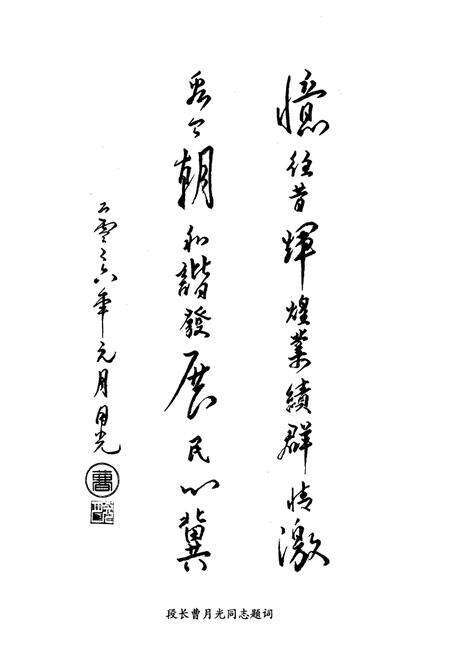 憶往昔輝煌業績群情激
看今朝和諧發展民心冀
二零零六年元月月光
曹
段长曹月光同志题词